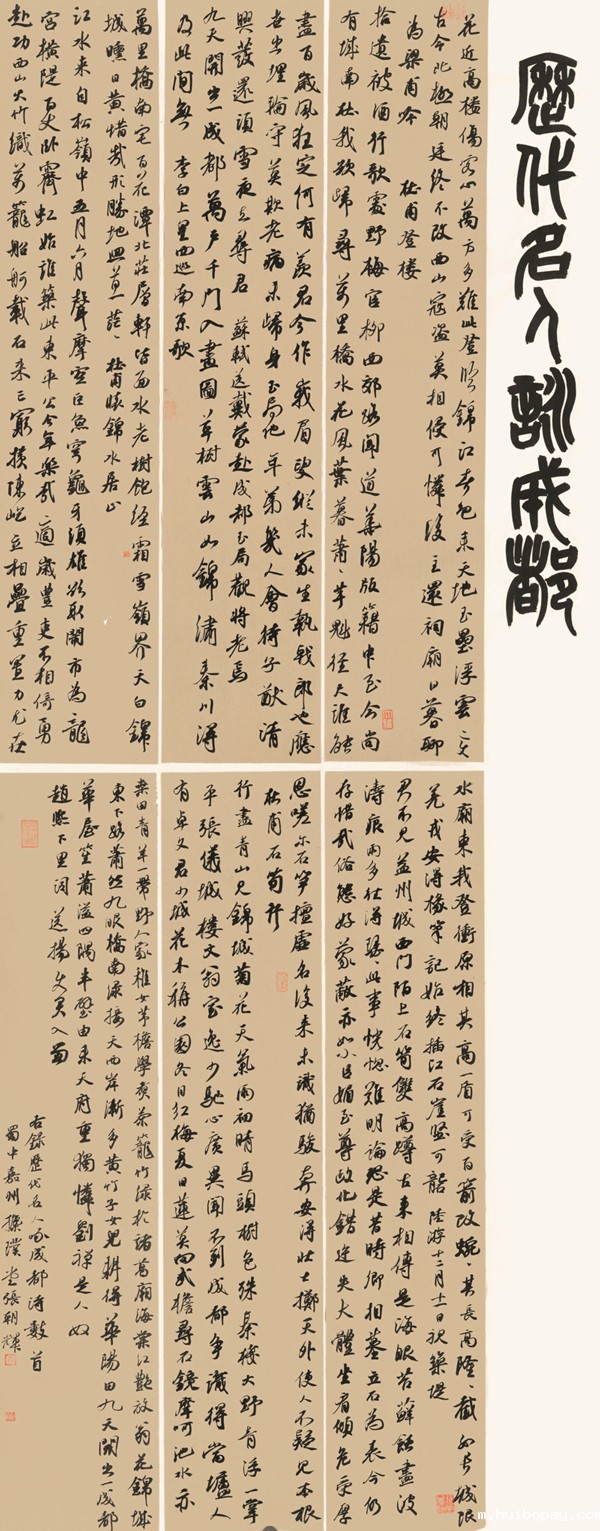 歷代名人詠成都
花近高樓傷客心萬方多難此登臨錦江春色來天地玉壘浮雲變
古今北極朝廷終不改西山寇盜莫相侵可憐後主還祠廟日暮聊
為梁甫吟 杜甫登樓
拾遺被酒行歌處野梅官柳西郊路聞道華陽版籍中至今尚
有城南杜我欲歸尋萬里橋水花風葉暮蕭蕭芋魁徑尺誰能
盡百歲風狂定何有羨君今作峨眉叟縱未家生執戟郎也應
世出埋輪守莫欺老病未歸身玉局他年第幾人會待子猷清
興發還須雪夜去尋君 蘇軾送戴蒙赴成都玉局觀將老焉
九天開出一成都萬戶千門入畫圖草樹雲山如錦繡秦川得
及此間無 李白上皇西巡南京歌
萬里橋南宅百花潭北莊層軒皆面水老樹飽經霜雪嶺界天白錦
城曛日黃惜哉形勝地回首一茫茫 杜甫懷錦水居止
江水來自松嶺中五月六月聲摩空巨魚穹龜牙須雄欲取闤市為龍
宮橫隄百丈臥霽虹始誰築此東平公今年樂哉適歲豐吏不相倚勇
赴功西山大竹織萬籠船舸載石來無窮橫陳屹立相疊重置力尤在
水廟東我登衝原相其高一盾可受百箭攻蜿蜿其長高隆隆截如長城限
羌戎安得椽筆記始終插江石崖堅可礱 陸游十二月十一日視築堤
君不見益州城西門陌上石筍雙高蹲古來相傳是海眼苔蘚蝕盡波
濤痕雨多往往得瑟瑟此事恍惚難明論恐是昔時卿相墓立石為表今仍
存惜哉俗態好蒙蔽亦如小臣媚至尊政化錯迕失大體坐看傾危受厚
恩嗟爾石筍擅虛名後來未識猶駿奔安得壯士擲天外使人不疑見本根
杜甫石筍行
行盡青山見錦城菊花天氣雨初晴馬頭樹色殊秦棧大野青浮一掌
平張儀城樓文翁室逸少馳心廣異聞不到成都爭識得當壚人
有卓文君少城花木稱公園冬日紅梅夏日蓮莫向武擔尋石鏡摩訶池水亦
桑田青羊一帶野人家稚女茅檐學煮茶籠竹綠於諸葛廟海棠紅艷放翁花錦城
東下路蕭然九眼橋南綠接天兩岸漸多黃竹子女兒耕得華陽田九天開出一成都
華屋笙簫溢四隅半壁由來天府重獨憐劉禪是人奴
趙熙下里詞送楊使君入蜀
右錄歷代名人詠成都詩數首
蜀中嘉州 璞堂張朝輝
m.huibopay.com